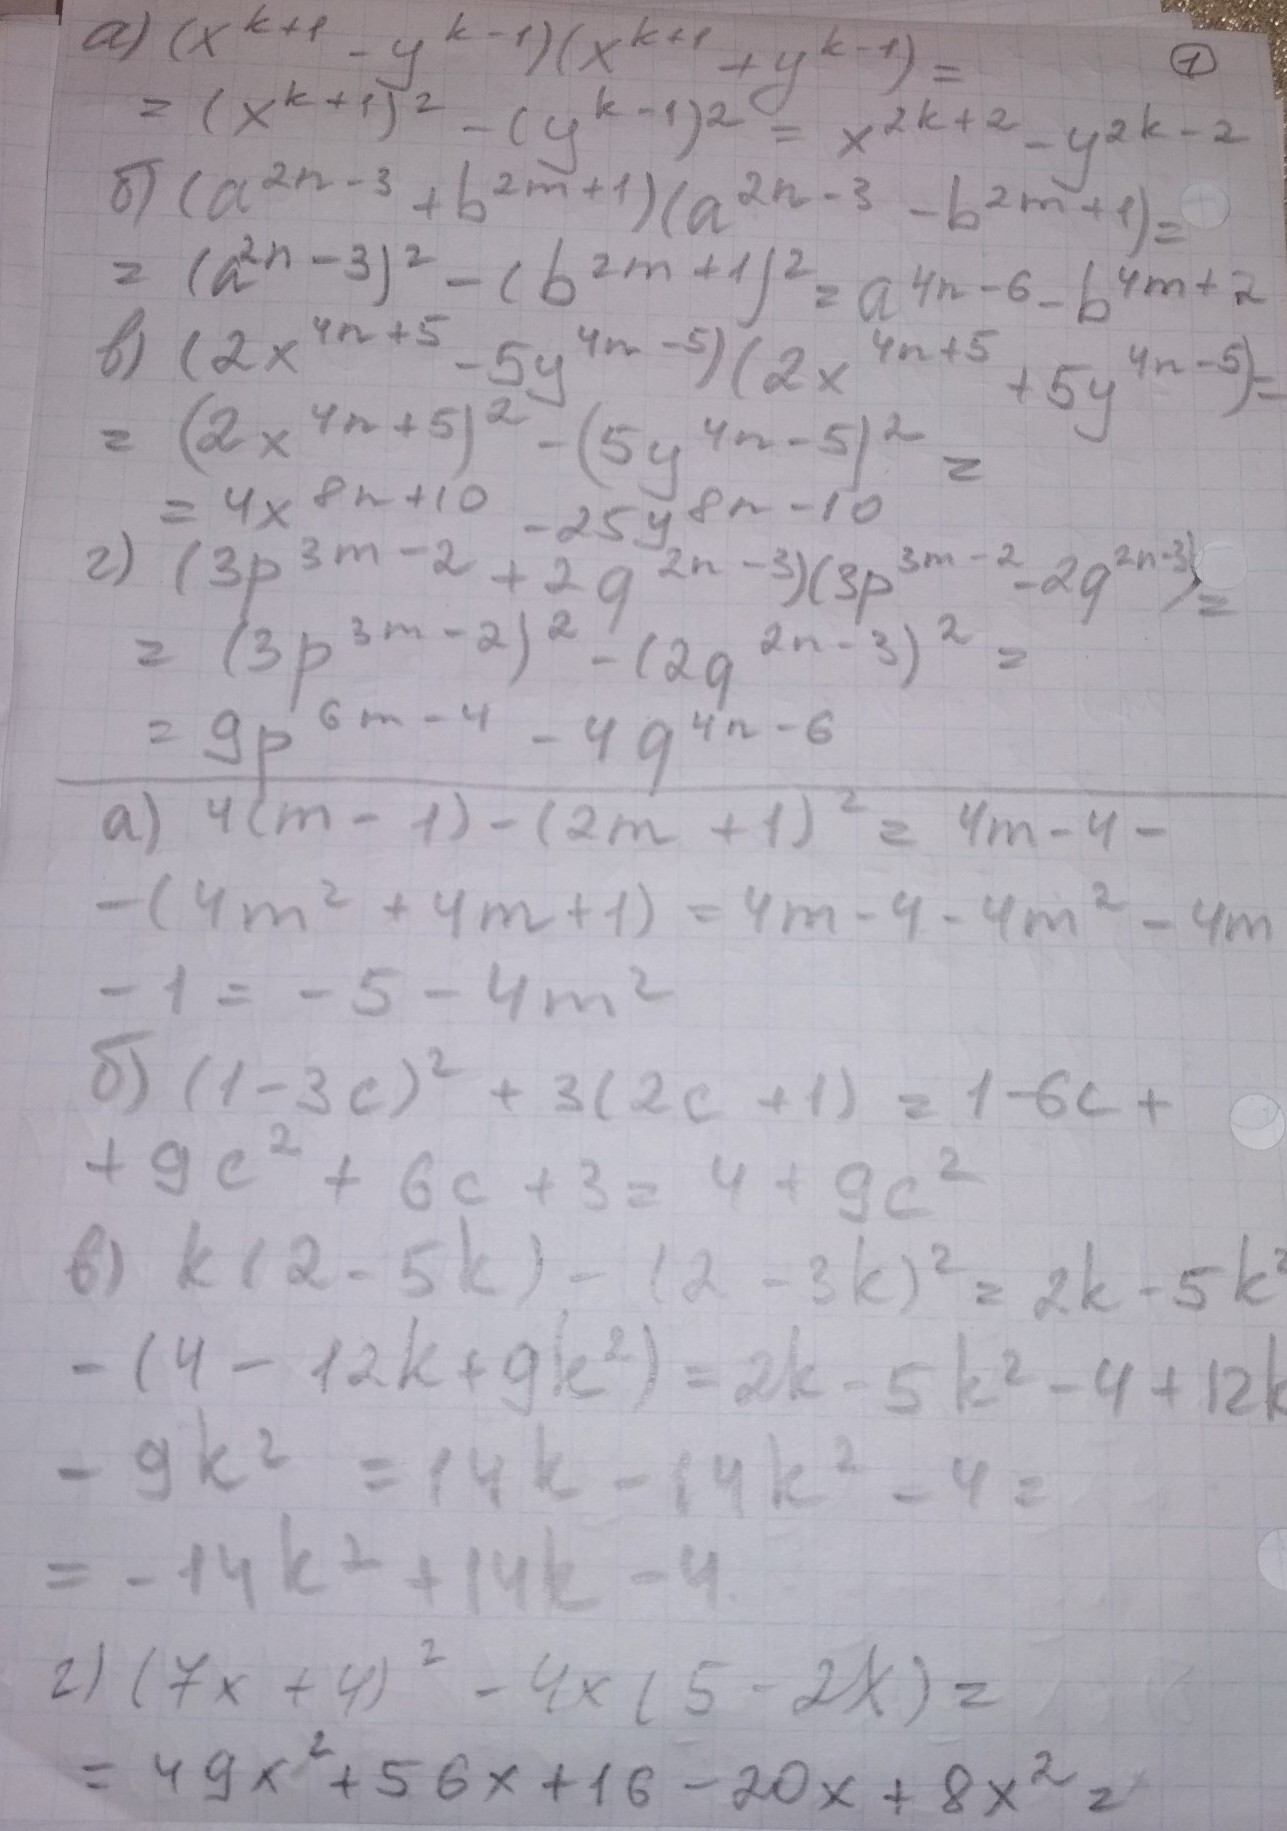 а) (x^{k+1} - y^{k-1})(x^{k+1} + y^{k-1}) =
①
= (x^{k+1})^2 - (y^{k-1})^2 = x^{2k+2} - y^{2k-2}
б) (a^{2n-3} + b^{2m+1})(a^{2n-3} - b^{2m+1}) =
= (a^{2n-3})^2 - (b^{2m+1})^2 = a^{4n-6} - b^{4m+2}
в) (2x^{4n+5} - 5y^{4n-5})(2x^{4n+5} + 5y^{4n-5}) =
= (2x^{4n+5})^2 - (5y^{4n-5})^2 =
= 4x^{8n+10} - 25y^{8n-10}
г) (3p^{3m-2} + 2q^{2n-3})(3p^{3m-2} - 2q^{2n-3}) =
= (3p^{3m-2})^2 - (2q^{2n-3})^2 =
= 9p^{6m-4} - 4q^{4n-6}
а) 4(m - 1) - (2m + 1)^2 = 4m - 4 -
- (4m^2 + 4m + 1) = 4m - 4 - 4m^2 - 4m
- 1 = - 5 - 4m^2
б) (1 - 3c)^2 + 3(2c + 1) = 1 - 6c +
+ 9c^2 + 6c + 3 = 4 + 9c^2
в) k(2 - 5k) - (2 - 3k)^2 = 2k - 5k^2
- (4 - 12k + 9k^2) = 2k - 5k^2 - 4 + 12k
- 9k^2 = 14k - 14k^2 - 4 =
= - 14k^2 + 14k - 4.
г) (7x + 4)^2 - 4x(5 - 2x) =
= 49x^2 + 56x + 16 - 20x + 8x^2 =